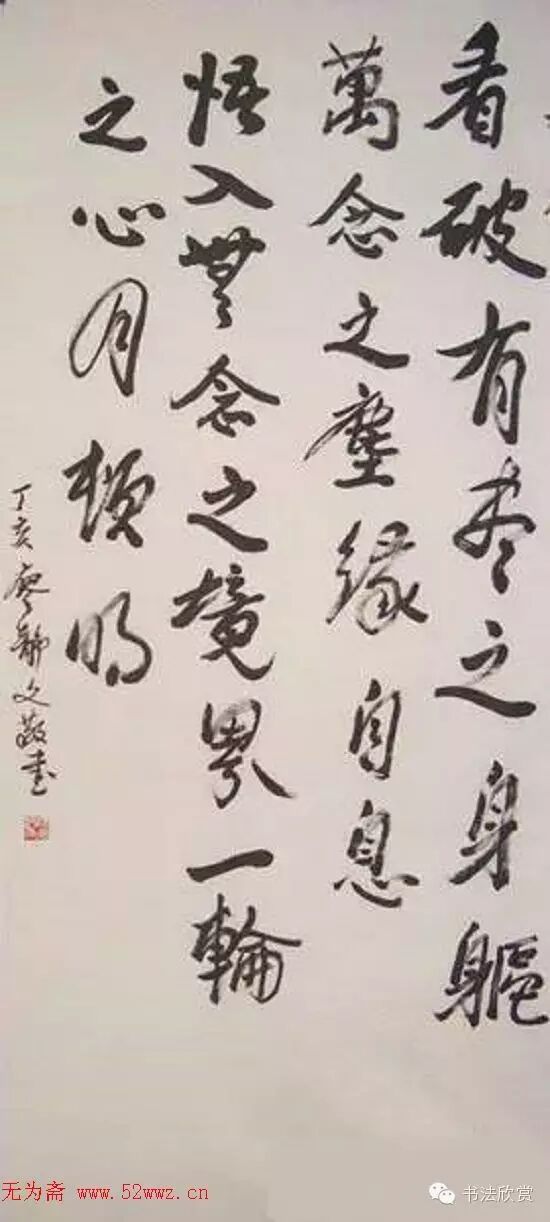 看破有尽之身軀
萬念之塵缘自息
悟入無念之境界一輪
之心月頓明
丁亥廖静文敬书
无为斋 www.52wwz.cn
书法欣赏